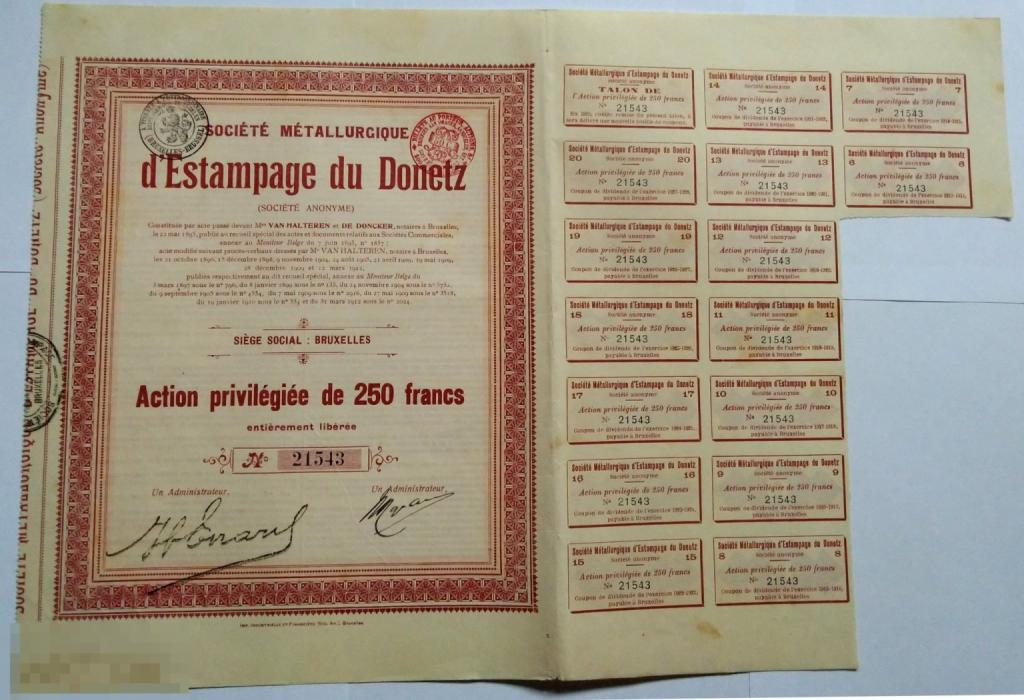 SOCIÉTÉ MÉTALLURGIQUE
d'Estampage du Donetz
(SOCIÉTÉ ANONYME)
Constituée par acte passé devant Mes VAN HALTEREN et DE DONCKER, notaires à Bruxelles,
le 22 mai 1895, publié au recueil spécial des actes et documents relatifs aux Sociétés Commerciales,
annexe au Moniteur Belge du 7 juin 1895, no 2887;
acte modifié suivant procès-verbaux devant Me VAN HALTEREN, notaire à Bruxelles,
les 21 octobre 1896, 18 décembre 1898, 9 novembre 1904, 24 août 1905, 21 avril 1909, 19 mai 1909,
28 décembre 1909 et 12 mars 1912,
publiés respectivement au dit recueil spécial, annexe au Moniteur Belge du
du 9 septembre 1905 sous le no 4554, du 7 mai 1909 sous le no 2916, du 27 mai 1909 sous le no 3518,
du 19 janvier 1910 sous le no 354 et du 31 mars 1912 sous le no 2024.
SIÈGE SOCIAL : BRUXELLES
Action privilégiée de 250 francs
entièrement libérée
No 21543
Un Administrateur, Un Administrateur,
IMP. INDUSTRIELLE ET FINANCIÈRE (SOC. AN.), BRUXELLES
SOCIÉTÉ MÉTALLURGIQUE D'ESTAMPAGE DU DONETZ (Société Anonyme)
Société Métallurgique d'Estampage du Donetz
Société anonyme
TALON DE
l'Action privilégiée de 250 francs
No 21543
Société Métallurgique d'Estampage du Donetz
14 Société anonyme 14
Action privilégiée de 250 francs
No 21543
Coupon de dividende de l'exercice 1921-1922,
payable à Bruxelles
Société Métallurgique d'Estampage du Donetz
7 Société anonyme 7
Action privilégiée de 250 francs
No 21543
Coupon de dividende de l'exercice 1914-1915,
payable à Bruxelles
Société Métallurgique d'Estampage du Donetz
20 Société anonyme 20
Action privilégiée de 250 francs
No 21543
Coupon de dividende de l'exercice 1927-1928,
payable à Bruxelles
Société Métallurgique d'Estampage du Donetz
13 Société anonyme 13
Action privilégiée de 250 francs
No 21543
Coupon de dividende de l'exercice 1920-1921,
payable à Bruxelles
Société Métallurgique d'Estampage du Donetz
6 Société anonyme 6
Action privilégiée de 250 francs
No 21543
Coupon de dividende de l'exercice 1913-1914,
payable à Bruxelles
Société Métallurgique d'Estampage du Donetz
19 Société anonyme 19
Action privilégiée de 250 francs
No 21543
Coupon de dividende de l'exercice 1926-1927,
payable à Bruxelles
Société Métallurgique d'Estampage du Donetz
12 Société anonyme 12
Action privilégiée de 250 francs
No 21543
Coupon de dividende de l'exercice 1919-1920,
payable à Bruxelles
Société Métallurgique d'Estampage du Donetz
18 Société anonyme 18
Action privilégiée de 250 francs
No 21543
Coupon de dividende de l'exercice 1925-1926,
payable à Bruxelles
Société Métallurgique d'Estampage du Donetz
11 Société anonyme 11
Action privilégiée de 250 francs
No 21543
Coupon de dividende de l'exercice 1918-1919,
payable à Bruxelles
Société Métallurgique d'Estampage du Donetz
17 Société anonyme 17
Action privilégiée de 250 francs
No 21543
Coupon de dividende de l'exercice 1924-1925,
payable à Bruxelles
Société Métallurgique d'Estampage du Donetz
10 Société anonyme 10
Action privilégiée de 250 francs
No 21543
Coupon de dividende de l'exercice 1917-1918,
payable à Bruxelles
Société Métallurgique d'Estampage du Donetz
16 Société anonyme 16
Action privilégiée de 250 francs
No 21543
Coupon de dividende de l'exercice 1923-1924,
payable à Bruxelles
Société Métallurgique d'Estampage du Donetz
9 Société anonyme 9
Action privilégiée de 250 francs
No 21543
Coupon de dividende de l'exercice 1916-1917,
payable à Bruxelles
Société Métallurgique d'Estampage du Donetz
15 Société anonyme 15
Action privilégiée de 250 francs
No 21543
Coupon de dividende de l'exercice 1922-1923,
payable à Bruxelles
Société Métallurgique d'Estampage du Donetz
8 Société anonyme 8
Action privilégiée de 250 francs
No 21543
Coupon de dividende de l'exercice 1915-1916,
payable à Bruxelles